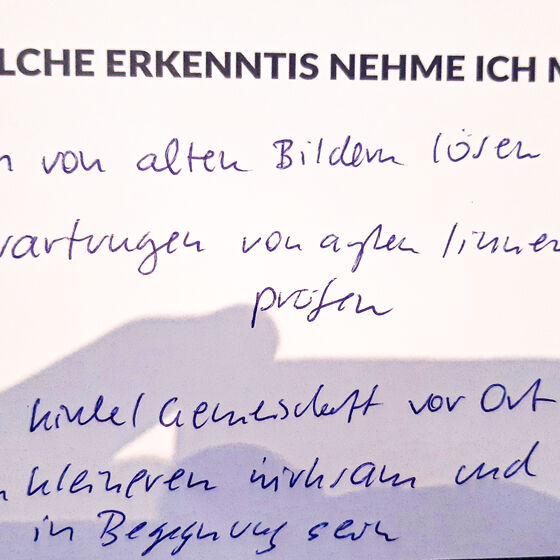 LCHE ERKENNTIS NEHME ICH M
n von alten Bildern lösen
wartungen von außen / innen
prüfen
Gemeinschaft vor Ort
kleineren wirksam und
in Begegnung sein